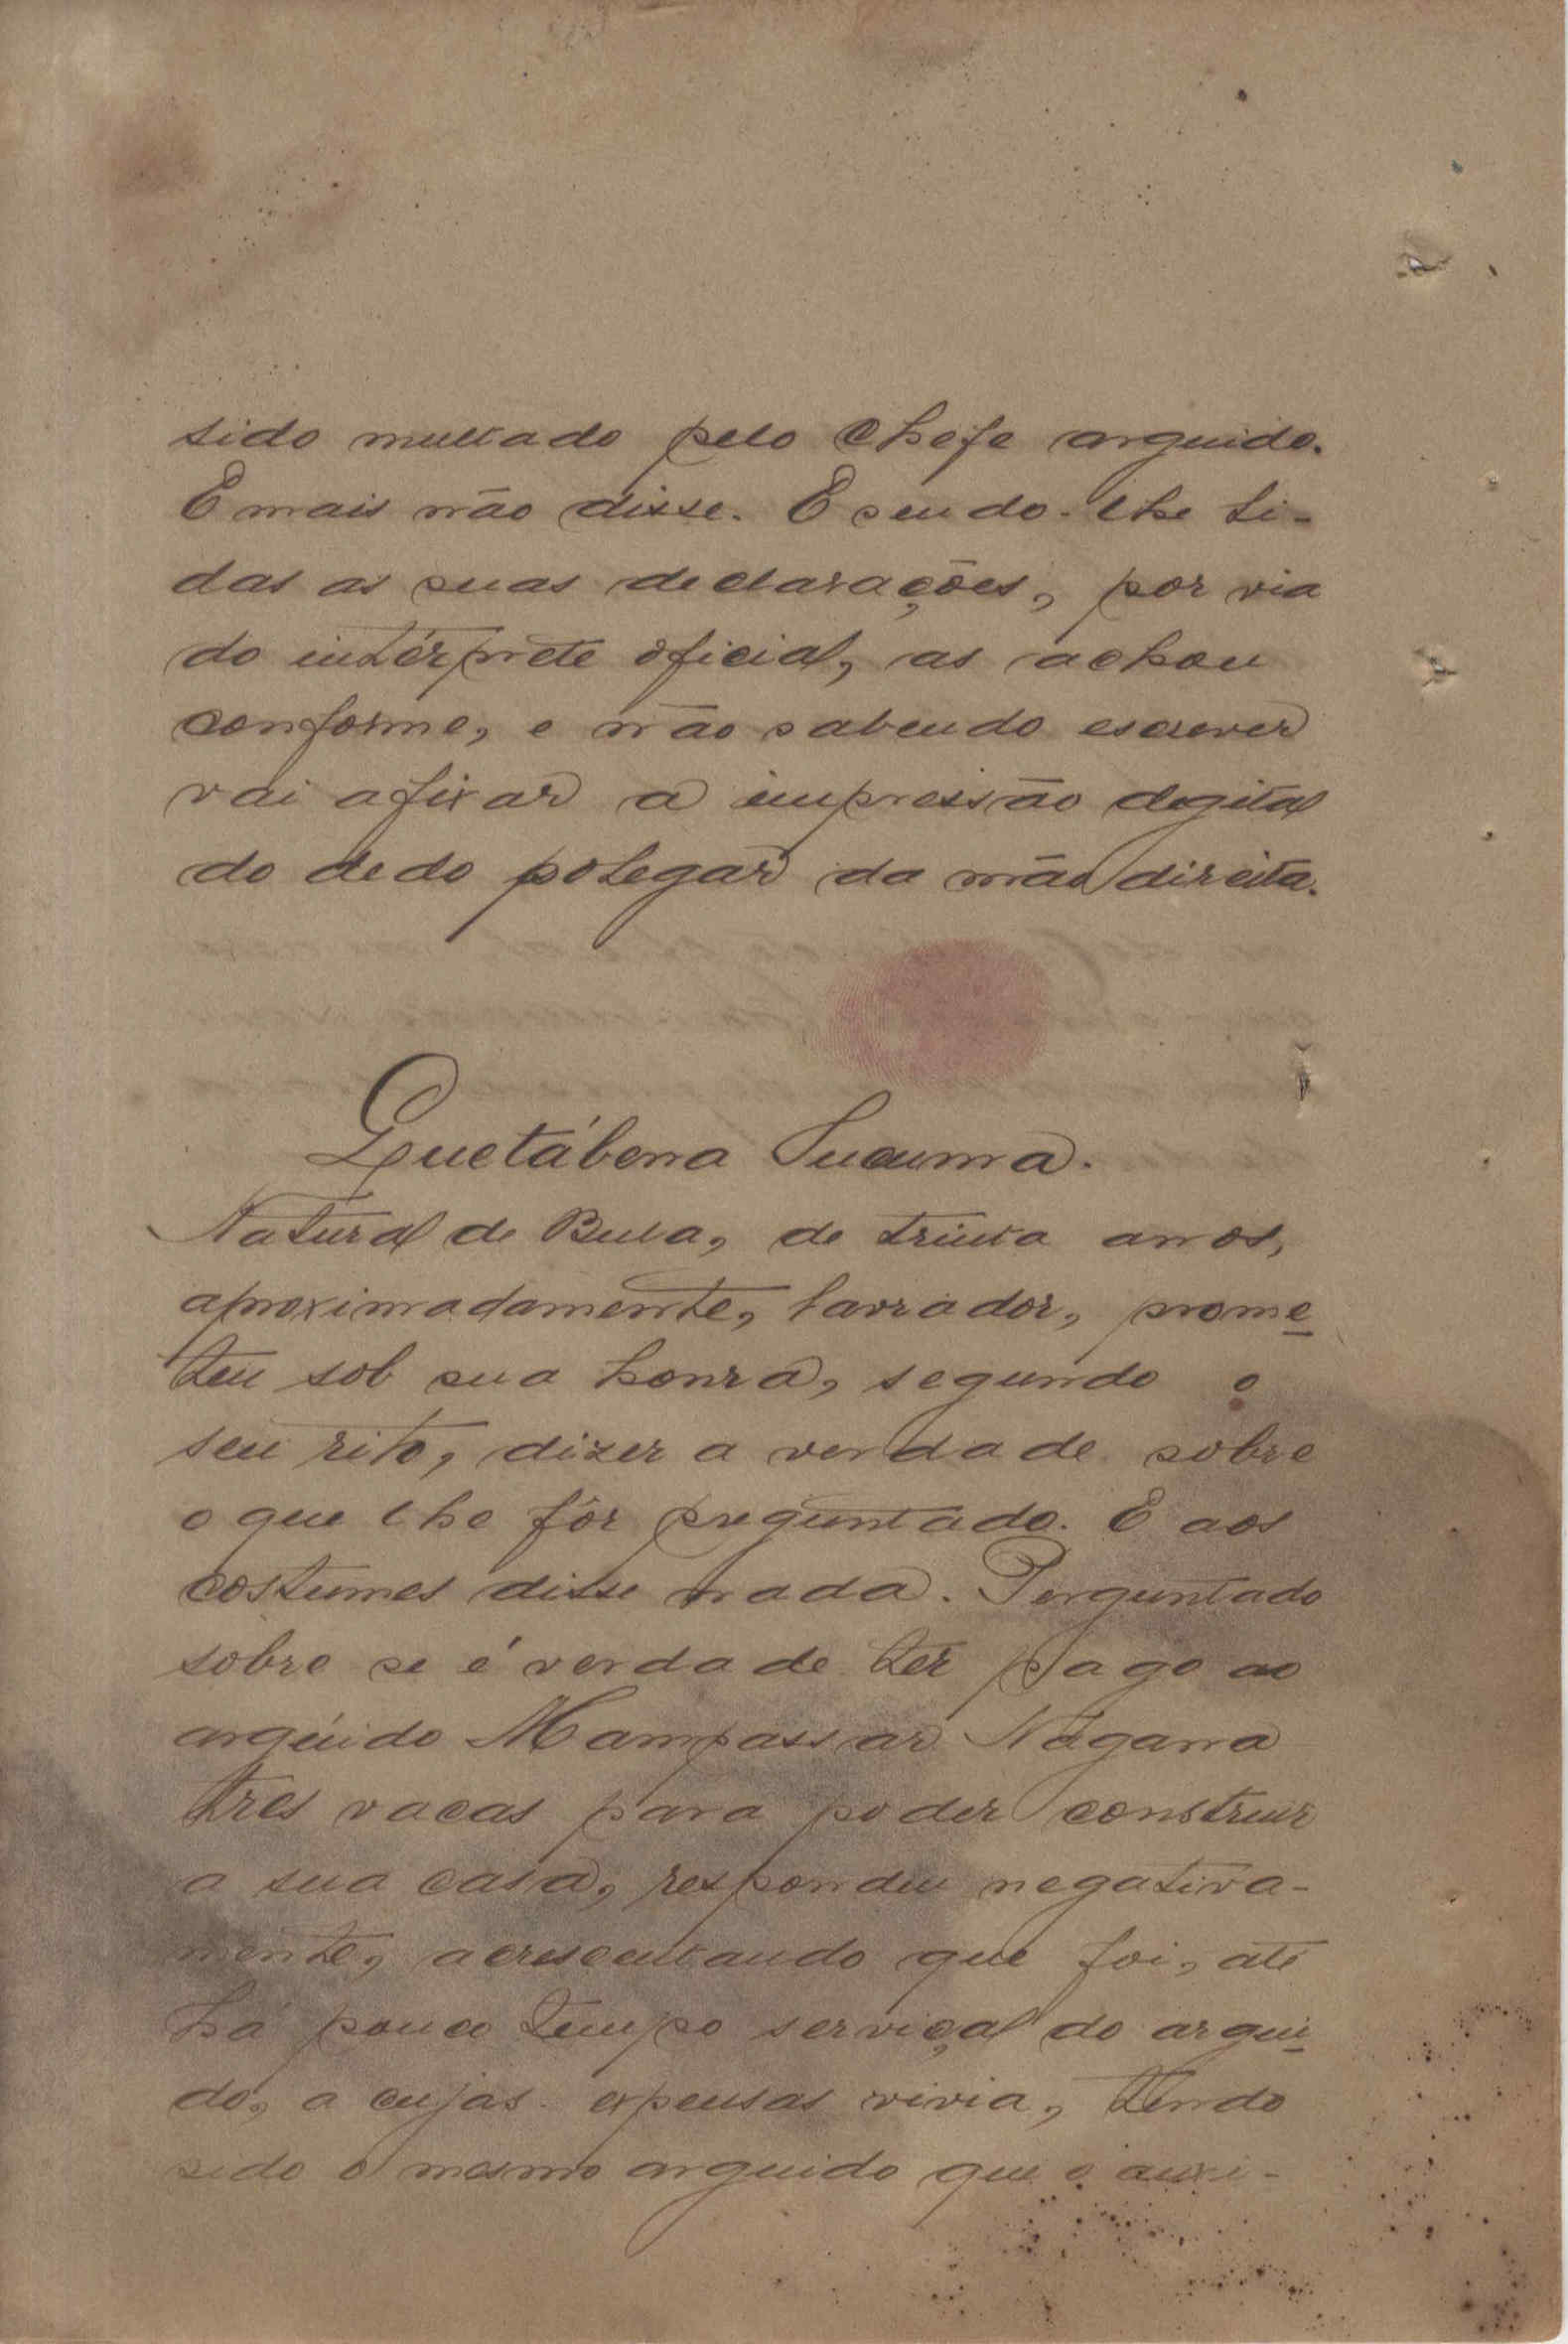 sido multado pelo Chefe arguido.
E mais não disse. E sendo-lhe li-
das as suas declarações, por via
do intérprete oficial, as achou
conforme, e não sabendo escrever
vai afixar a impressão degital
do dedo polegar da mão direita.
Quetábena Sucuma.
Natural de Bula, de trinta anos,
aproximadamente, lavrador, prome-
teu sob sua honra, segundo o
seu rito, dizer a verdade sobre
o que lhe fôr preguntado. E aos
costumes disse nada. Perguntado
sobre se é verdade ter pago ao
argùido Mampassar Nágana
tres vacas para poder construir
a sua casa, respondeu negativa-
mente, acrescentando que foi, até
há pouco tempo serviçal do argui-
do, a cujas expensas vivia, tendo
sido o mesmo arguido que o auxi-